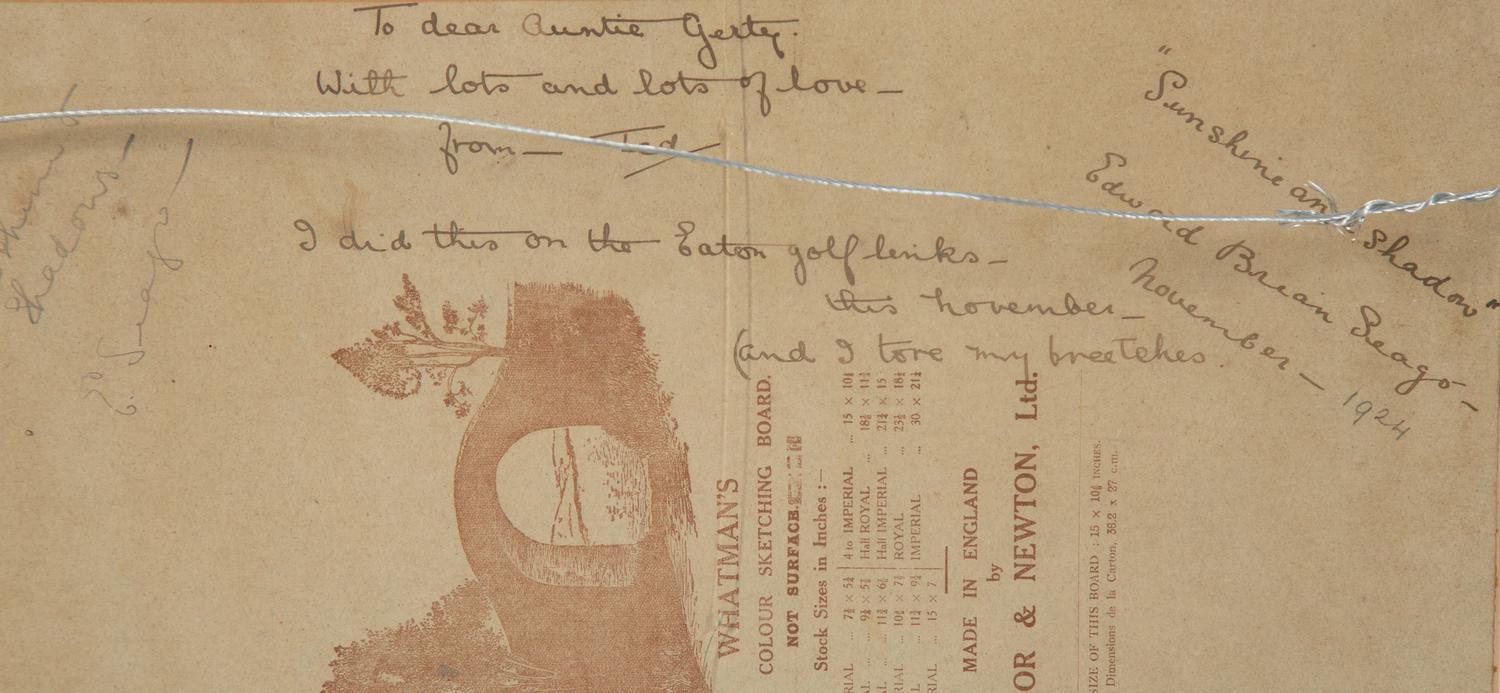 To dear Auntie Gerty.
With lots and lots of love —
from — Ted
I did this on the Eaton golf links —
this november —
(and I tore my breetches
"Sunshine and Shadow"
Edward Brian Seago —
November — 1924
Shadows
E. Seago
WHATMAN'S
COLOUR SKETCHING BOARD.
NOT SURFACE.
Stock Sizes in Inches :—
RIAL ... 7½ × 5¼ | 4to IMPERIAL ... 15 × 10¾
AL ... 9¼ × 5¾ | Half ROYAL ... 18¾ × 11¾
RIAL ... 11¾ × 6¾ | Half IMPERIAL ... 21¾ × 15
AL ... 10¾ × 7½ | ROYAL ... 23¾ × 18¾
L ... 11¾ × 9¼ | IMPERIAL ... 30 × 21¾
RIAL ... 15 × 7
MADE IN ENGLAND
by
OR & NEWTON, Ltd.
SIZE OF THIS BOARD : 15 × 10¾ INCHES.
Dimensions de la Carton, 38.2 x 27 c.m.